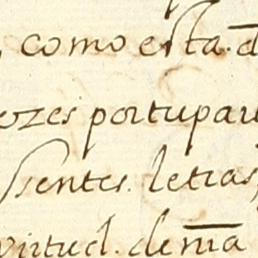 como esta. d
ozes por tu par
ssentes. letras,
virtud. de mã